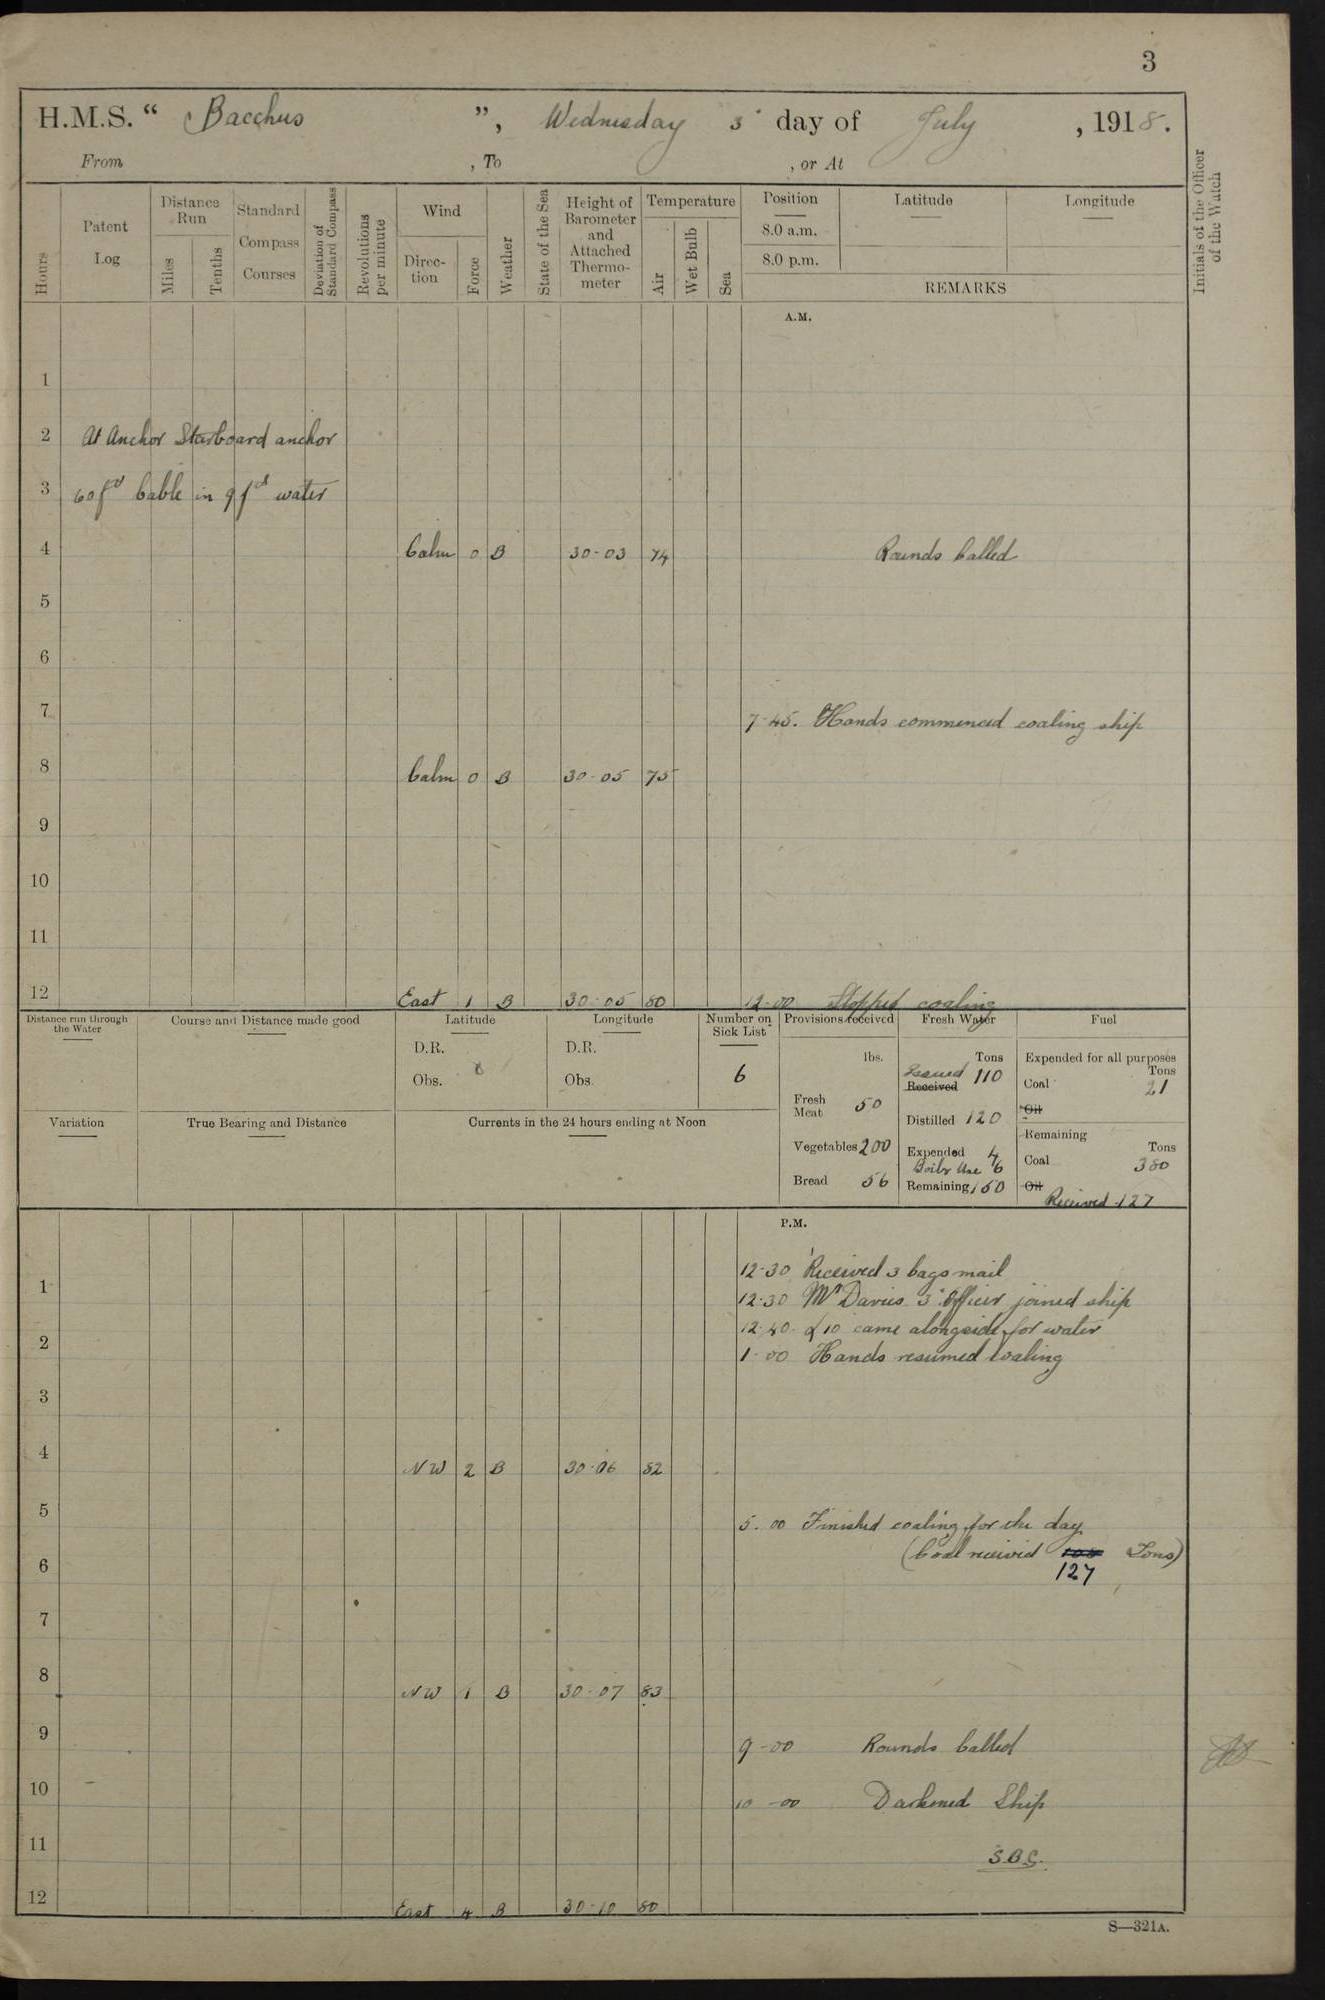 3
H.M.S. “ Bacchus ”, Wednesday 3 day of July , 1918.
From , To , or At
Hours
Patent Log
Distance Run
Miles
Tenths
Standard Compass Courses
Deviation of Standard Compass
Revolutions per minute
Wind
Direc- tion
Force
Weather
State of the Sea
Height of Barometer and Attached Thermo- meter
Temperature
Air
Wet Bulb
Sea
Position
8.0 a.m.
8.0 p.m.
Latitude
Longitude
REMARKS
Initials of the Officer of the Watch
A.M.
1
2 At Anchor Starboard anchor
3 60 fms Cable in 9 fms water
4 Calm 0 B 30-03 74 Rounds Called
5
6
7 7-45. Hands commenced coaling ship
8 Calm 0 B 30-05 75
9
10
11
12 East 1 B 30-05 80 12-00 Stopped coaling
Distance run through the Water
Course and Distance made good
Latitude
D.R.
Obs.
Longitude
D.R.
Obs.
Number on Sick List
6
Provisions received
lbs.
Fresh Meat 50
Vegetables 200
Bread 56
Fresh Water
Tons
Issued 110
Received
Distilled 120
Expended 4
Boiler Use 6
Remaining 150
Fuel
Expended for all purposes
Tons
Coal 21
Oil
Remaining
Tons
Coal 380
Oil
Received 127
Variation
True Bearing and Distance
Currents in the 24 hours ending at Noon
P.M.
12-30 Received 3 bags mail
1
12-30 Mr Davies 3 Officer joined ship
12-40 L 10 came alongside for water
2
1-00 Hands resumed coaling
3
4 NW 2 B 30-06 82
5 5.00 Finished coaling for the day
(Coal received 100 Tons)
6 127
7
8 NW 1 B 30-07 83
9 9-00 Rounds Called
10 10-00 Darkened Ship
11 S.B.G.
12 East 4 B 30-10 80
S—321A.